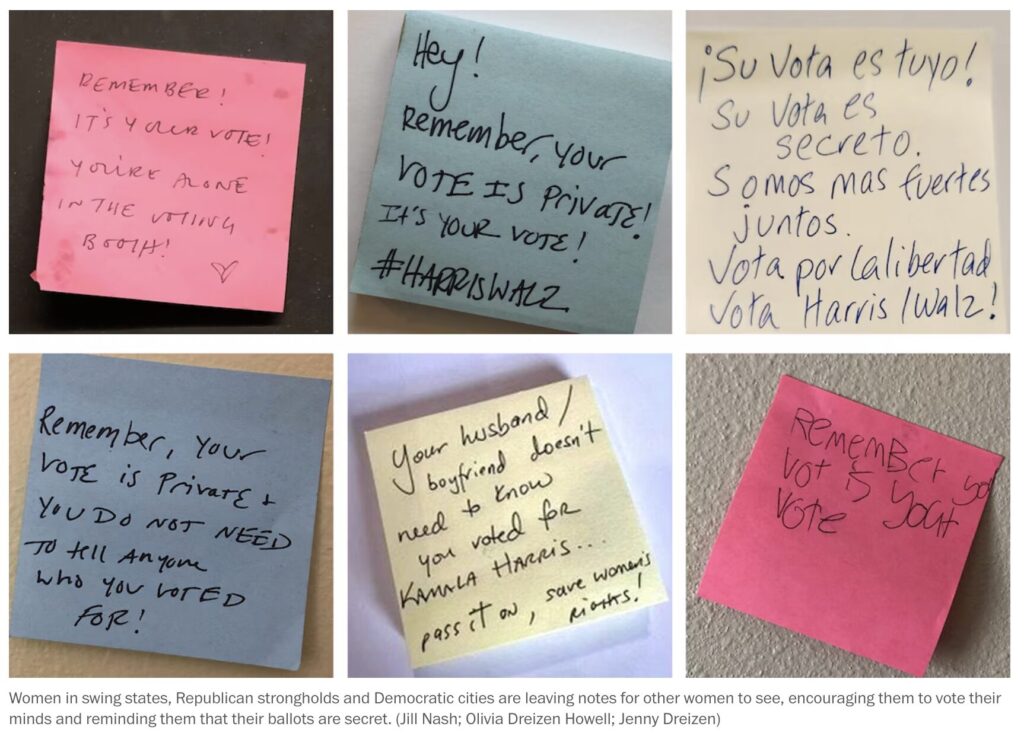 REMEMBER!
IT'S YOUR VOTE!
YOU'RE ALONE
IN THE VOTING
BOOTH!
Hey!
Remember, your
VOTE IS Private!
IT'S YOUR VOTE!
#HARRISWALZ
¡Su Vota es tuyo!
Su vota es
secreto.
Somos mas fuertes
juntos.
Vota por la libertad
Vota Harris/Walz!
Remember, your
VOTE is Private &
YOU DO NOT NEED
TO tell ANYONE
WHO YOU VOTED
FOR!
Your husband/
boyfriend doesn't
need to know
you voted for
KAMALA HARRIS...
pass it on, save women's
rights!
Remember yo
vot is your
Vote
Women in swing states, Republican strongholds and Democratic cities are leaving notes for other women to see, encouraging them to vote their
minds and reminding them that their ballots are secret. (Jill Nash; Olivia Dreizen Howell; Jenny Dreizen)